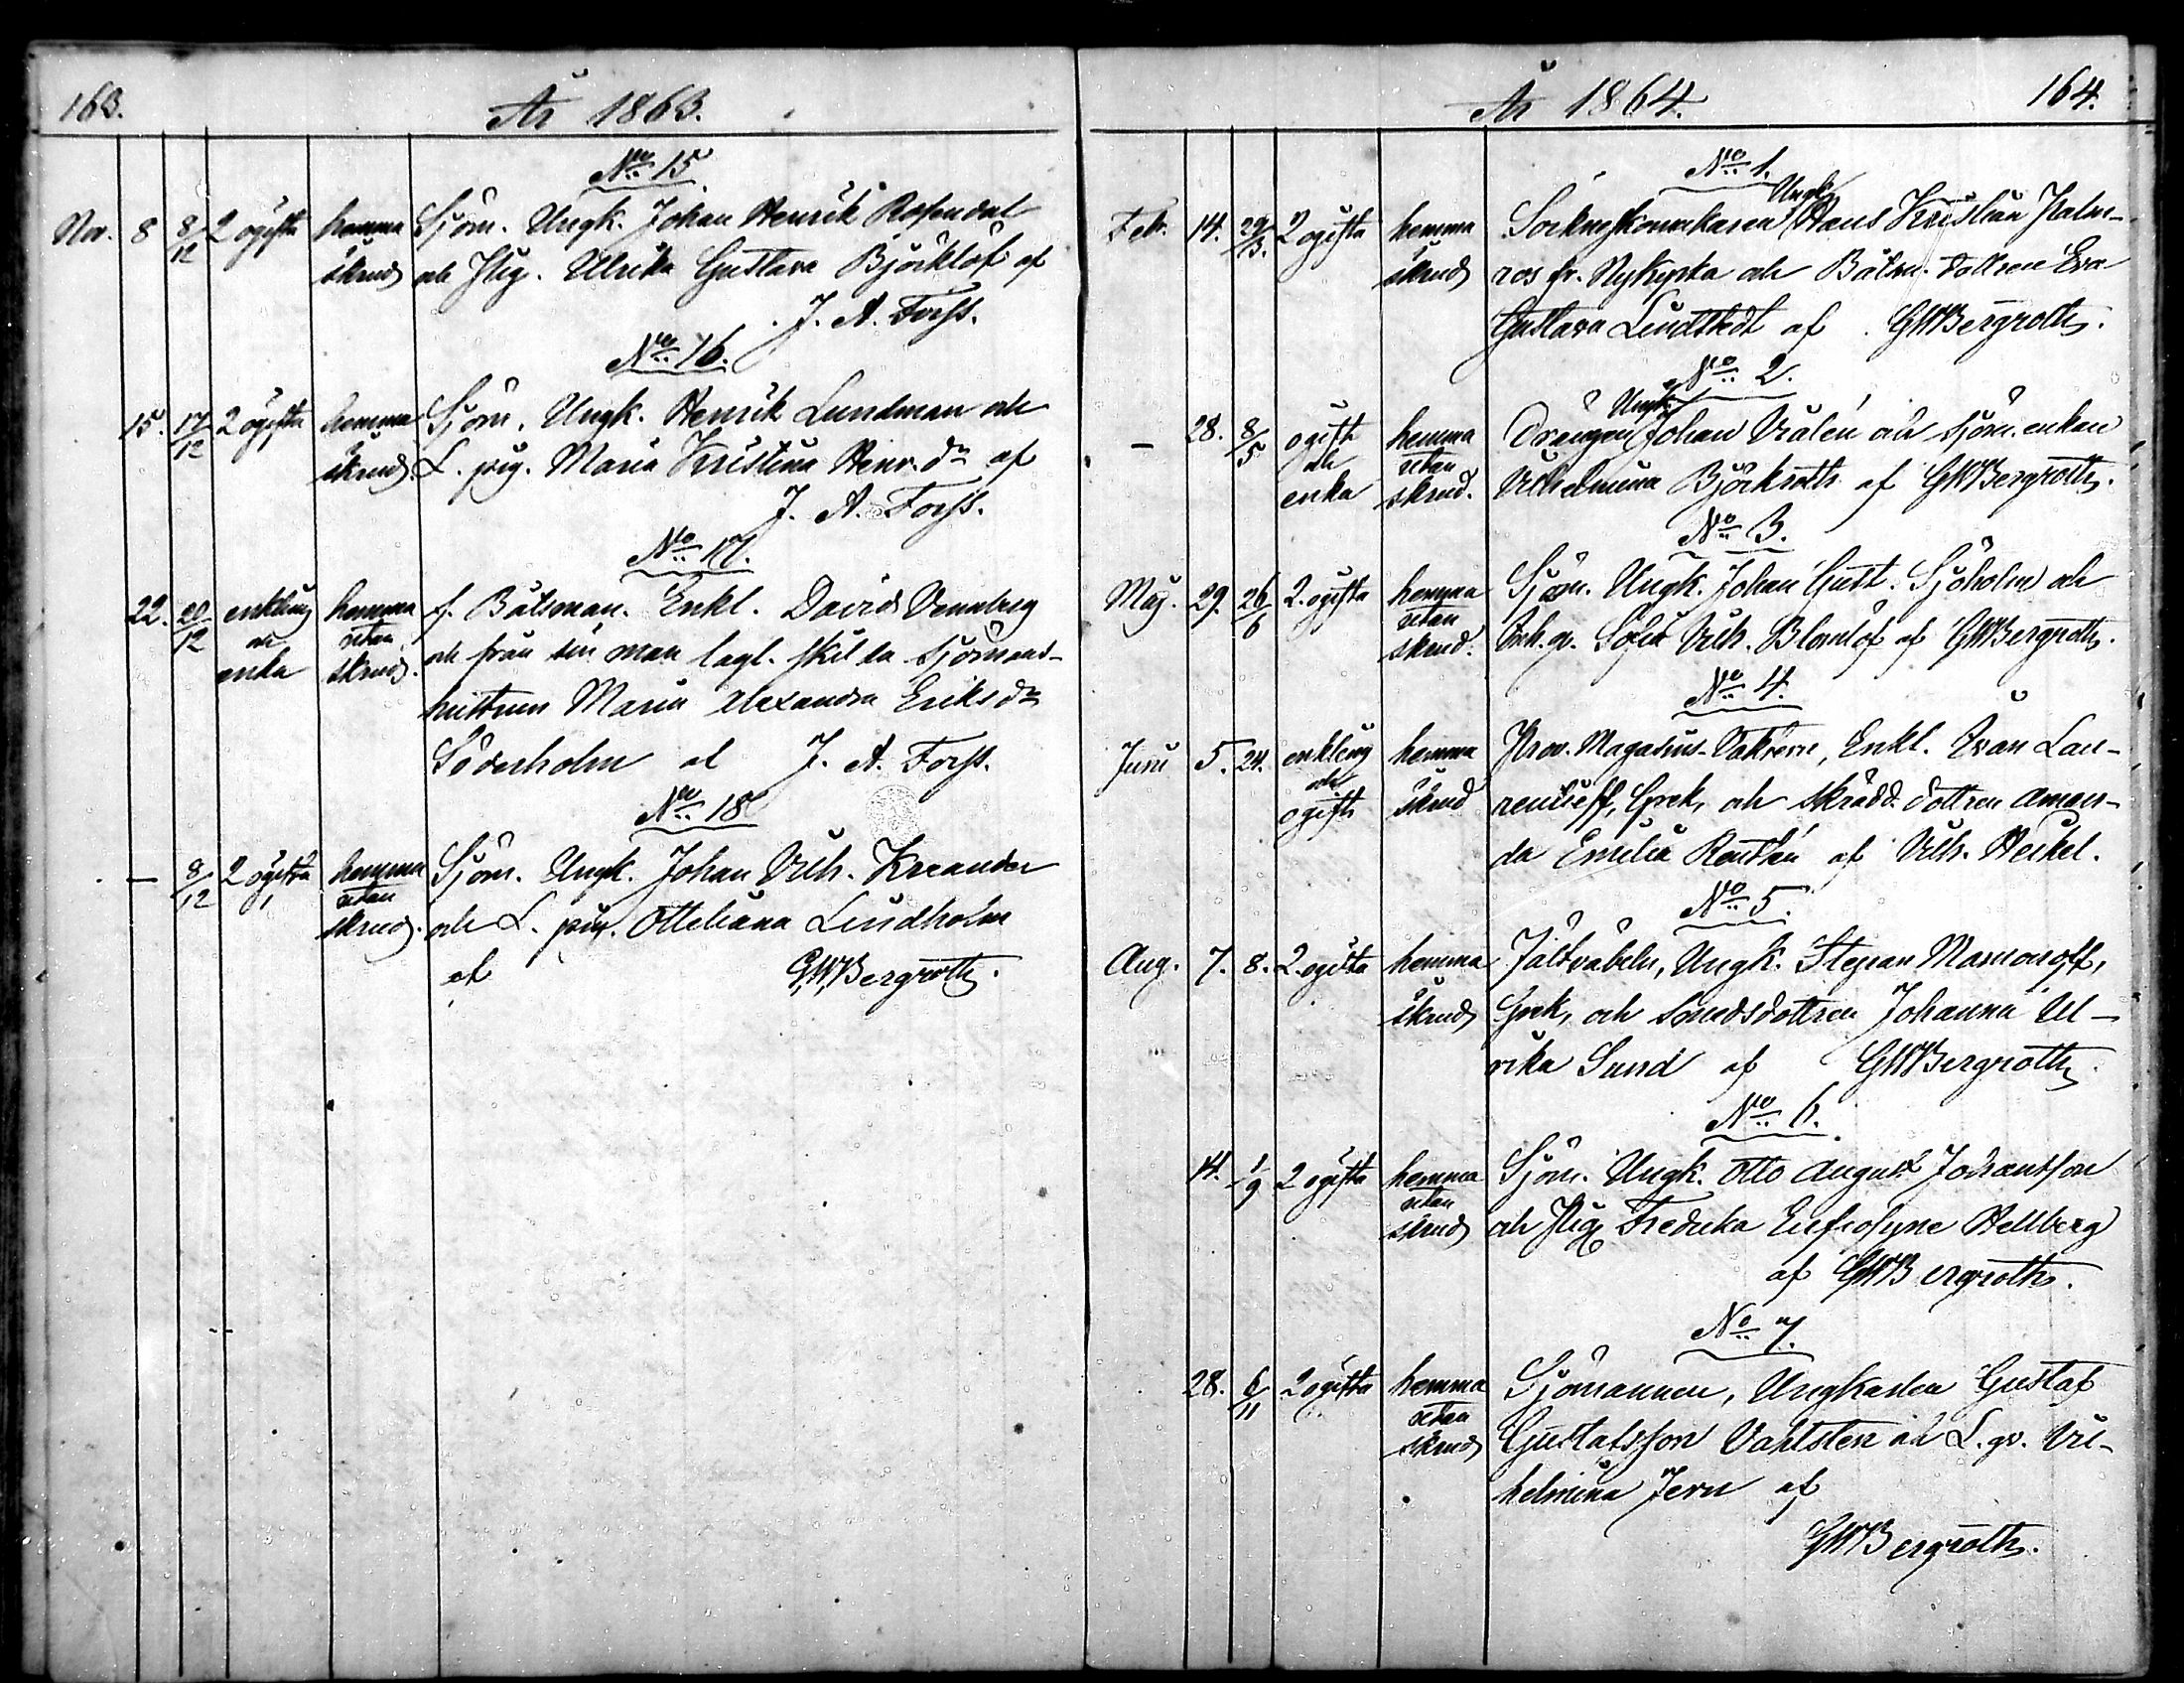 163.
År 1863.
No 15
Nov. 8 8/12 2 ogifta hemma skrud Sjöm. Ungk. Johan Henrik Rosendal
och Pig. Ulrika Gustava Björklöf af
J. A. Forss.
No 16.
15. 17/12 2 ogifta hemma skrud. Sjöm. Ungk. Henrik Lundman och
L. pig. Maria Kristina Henr. dr af
J. A. Forss.
No 17.
22. /12 enkling och enka hemma utan skrud. f. Båtsman. Enkl. David Vennberg
och från sin man lagl. skilda sjömans-
hustrun Maria Alexandra Eriksdr
Söderholm af J. A. Forss.
No 18
— 8/12 2 ogifta hemma utan skrud. Sjöm. Ungk. Johan Vilh. Kreander
och L. pig. Otteliana Lindholm
af G.W.Bergroth.
År 1864.
164.
No 1.
Ungk.
Feb. 14. 29/3. 2 ogifta hemma skrud Sockneskomakaren Hans Kristian Palm-
ros fr. Nykyrka och Båtsm. dottren Eva
Gustava Lindstedt af GWBergroth.
No 2.
Ungk.
— 28. 8/5 ogift och enka hemma utan skrud. Drängen Johan Vrålén och sjöm. enkan
Vilhelmina Björkroth af GWBergroth.
No 3.
Maj. 29. 26/6 2. ogifta hemma utan skrud. Sjöm. Ungk. Johan Gust. Sjöholm och
Inh. p. Sofia Vilh. Blomlöf af GWBergroth.
No 4.
Juni 5. 24. enkling och ogift hemma skrud Prov. Magasins-Vaktern, Enkl. Ivan Lau-
rentieff, Grek, och skrädd. dottren Aman-
da Emilia Renstén af Vilh. Heikel.
No 5.
Aug. 7. 8. 2. ogifta hemma skrud Fältväbeln, Ungk. Stepan Mamonoff,
Grek, och smedsdottren Johanna Ul-
rika Sund af GWBergroth.
No 6.
14. 1/9 2 ogifta hemma utan skrud Sjöm. Ungk. Otto August Johansson
och Pig. Fredrika Eufrosyne Hellberg
af GWBergroth.
No 7.
28. 6/11 2 ogifta hemma utan skrud Sjömannen, Ungkarlen Gustaf
Gustafsson Vahlsten och L. p. Vil-
helmina Jern af
GWBergroth.